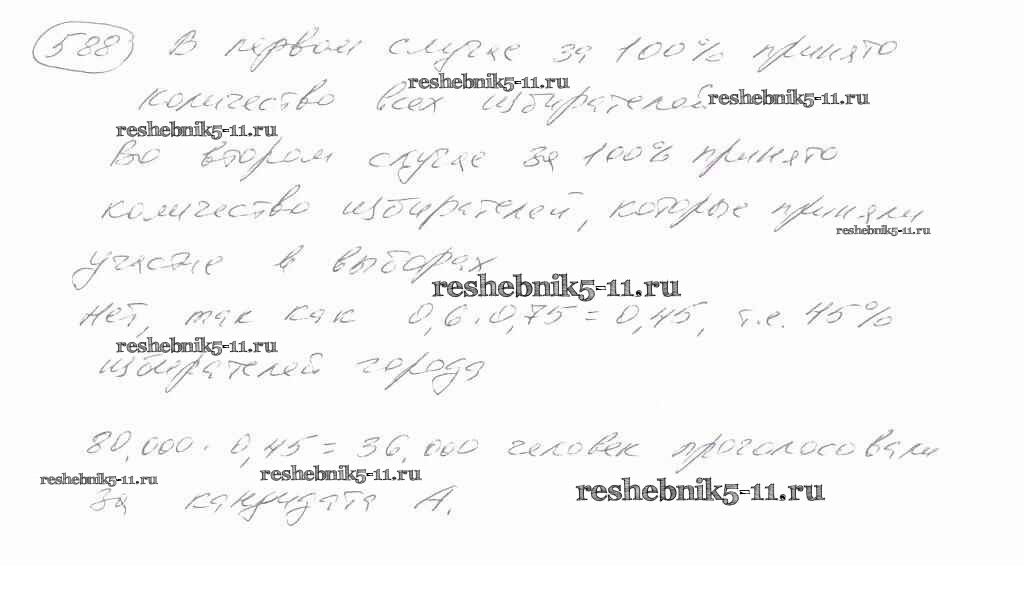 588 В первом случае за 100% принято
reshebnik5-11.ru
количество всех избирателей
reshebnik5-11.ru
reshebnik5-11.ru
Во втором случае за 100% принято
количество избирателей, которые приняли
reshebnik5-11.ru
участие в выборах
reshebnik5-11.ru
Нет, так как 0,6 · 0,75 = 0,45, т.е. 45%
reshebnik5-11.ru
избирателей города
80,000 · 0,45 = 36,000 человек проголосовали
reshebnik5-11.ru
reshebnik5-11.ru
reshebnik5-11.ru
за кандидата А.